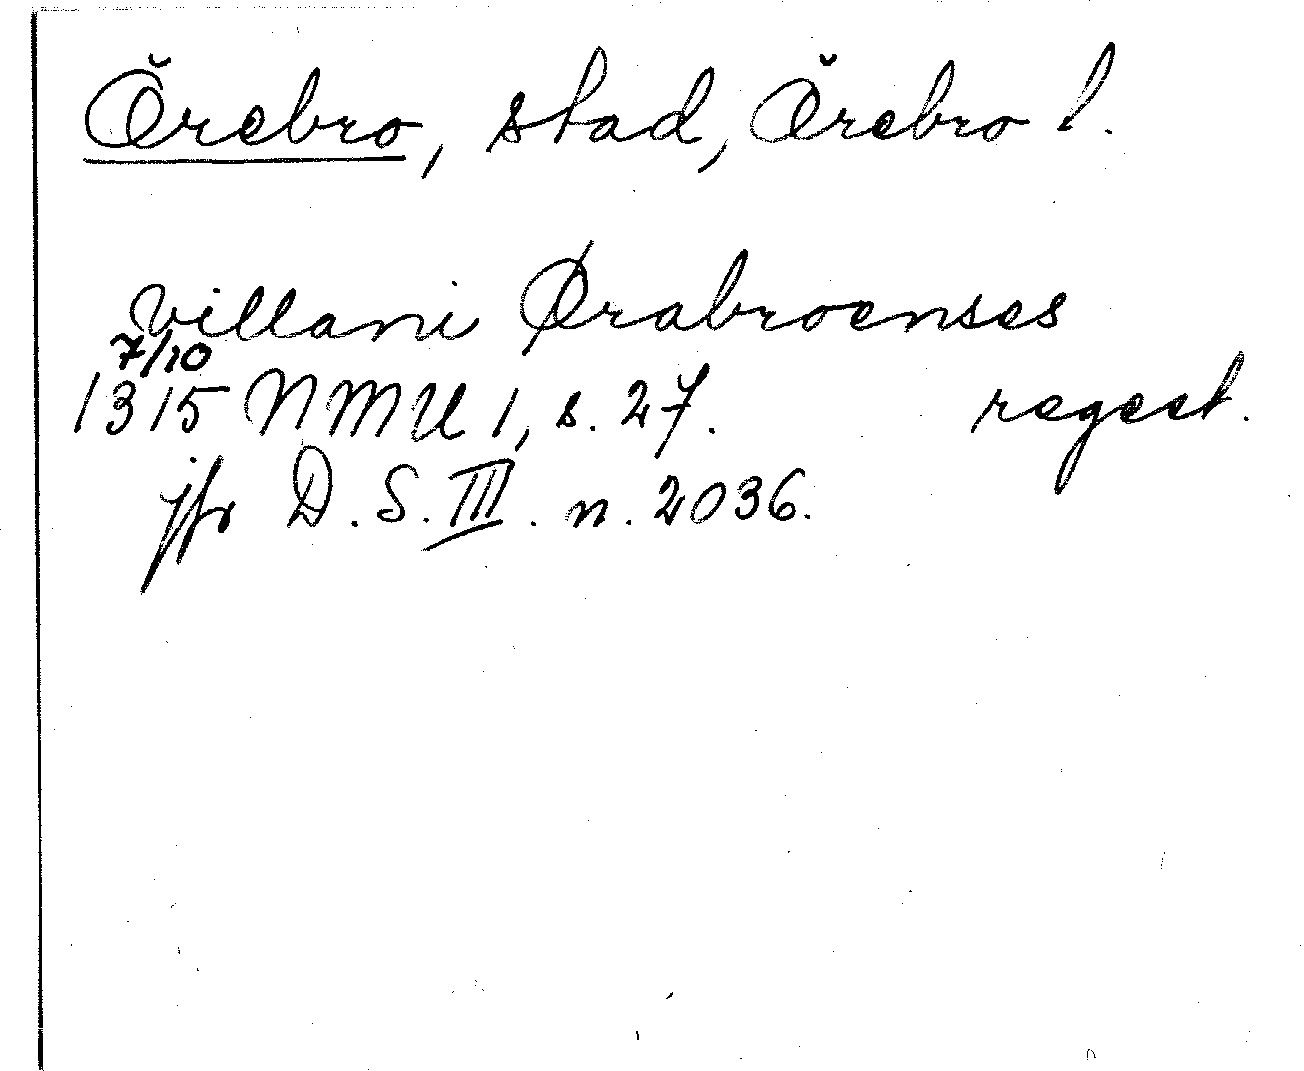 Örebro, stad, Örebro l.
villani Ørabroenses
7/10
1315 NMU 1, s. 27. regest.
jfr D.S. III. n. 2036.